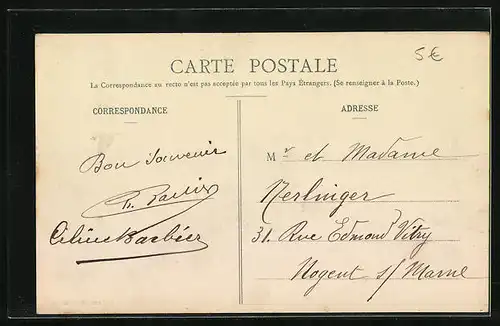 5€
CARTE POSTALE
La Correspondance au recto n'est pas acceptée par tous les Pays Étrangers. (Se renseigner à la Poste.)
CORRESPONDANCE
Bon Souvenir
Céline Barbier
ADRESSE
Mr et Madame
Nerlinger
31. Rue Edmond Vitry
Nogent s/ Marne